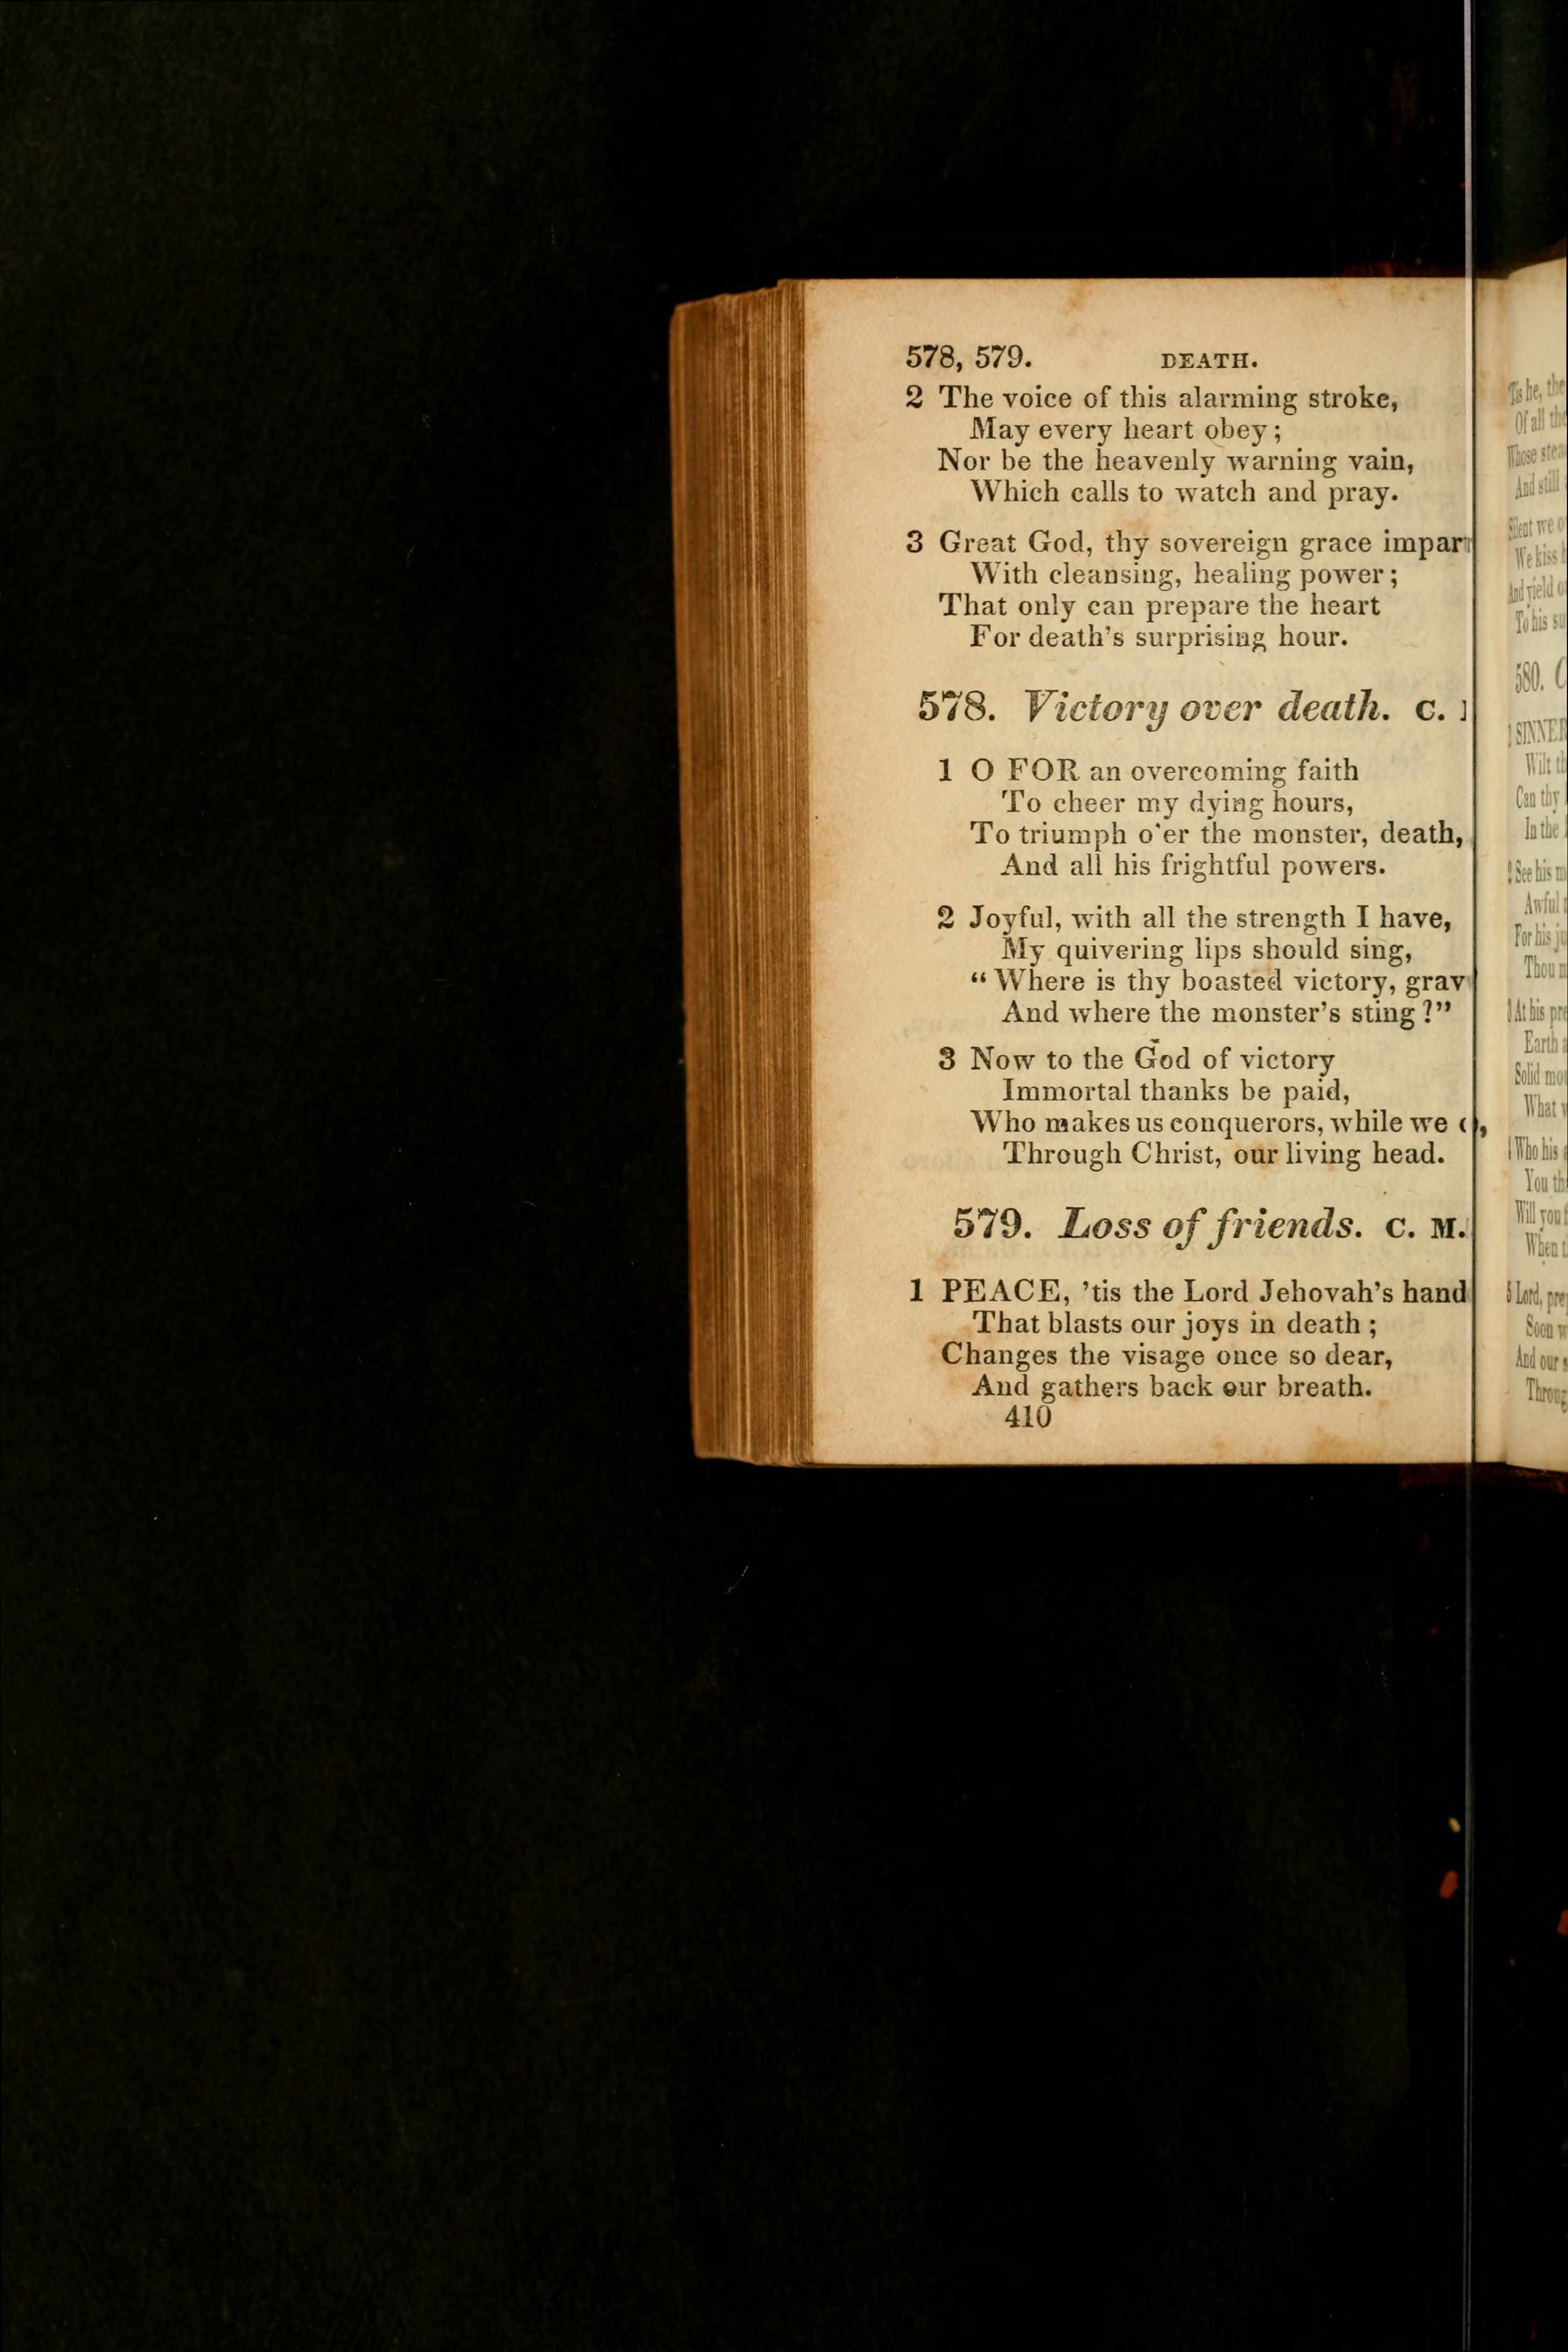 578, 579. DEATH.
2 The voice of this alarming stroke,
May every heart obey;
Nor be the heavenly warning vain,
Which calls to watch and pray.
3 Great God, thy sovereign grace impar
With cleansing, healing power;
That only can prepare the heart
For death's surprising hour.
578. Victory over death. C.
1 O FOR an overcoming faith
To cheer my dying hours,
To triumph o'er the monster, death,
And all his frightful powers.
2 Joyful, with all the strength I have,
My quivering lips should sing,
"Where is thy boasted victory, grav
And where the monster's sting?"
3 Now to the God of victory
Immortal thanks be paid,
Who makes us conquerors, while we
Through Christ, our living head.
579. Loss of friends. C. M.
1 PEACE, 'tis the Lord Jehovah's hand
That blasts our joys in death;
Changes the visage once so dear,
And gathers back our breath.
410
'Tis he, the
Of all the
Whose
And still
Silent we
We kiss
And yield
To his
580.
1 SINNER
Wilt
Can thy
In the
2 See his
Awful
For his
Thou
3 At his
Earth
Solid
What
4 Who his
You
Will you
When
5 Lord,
Soon
And our